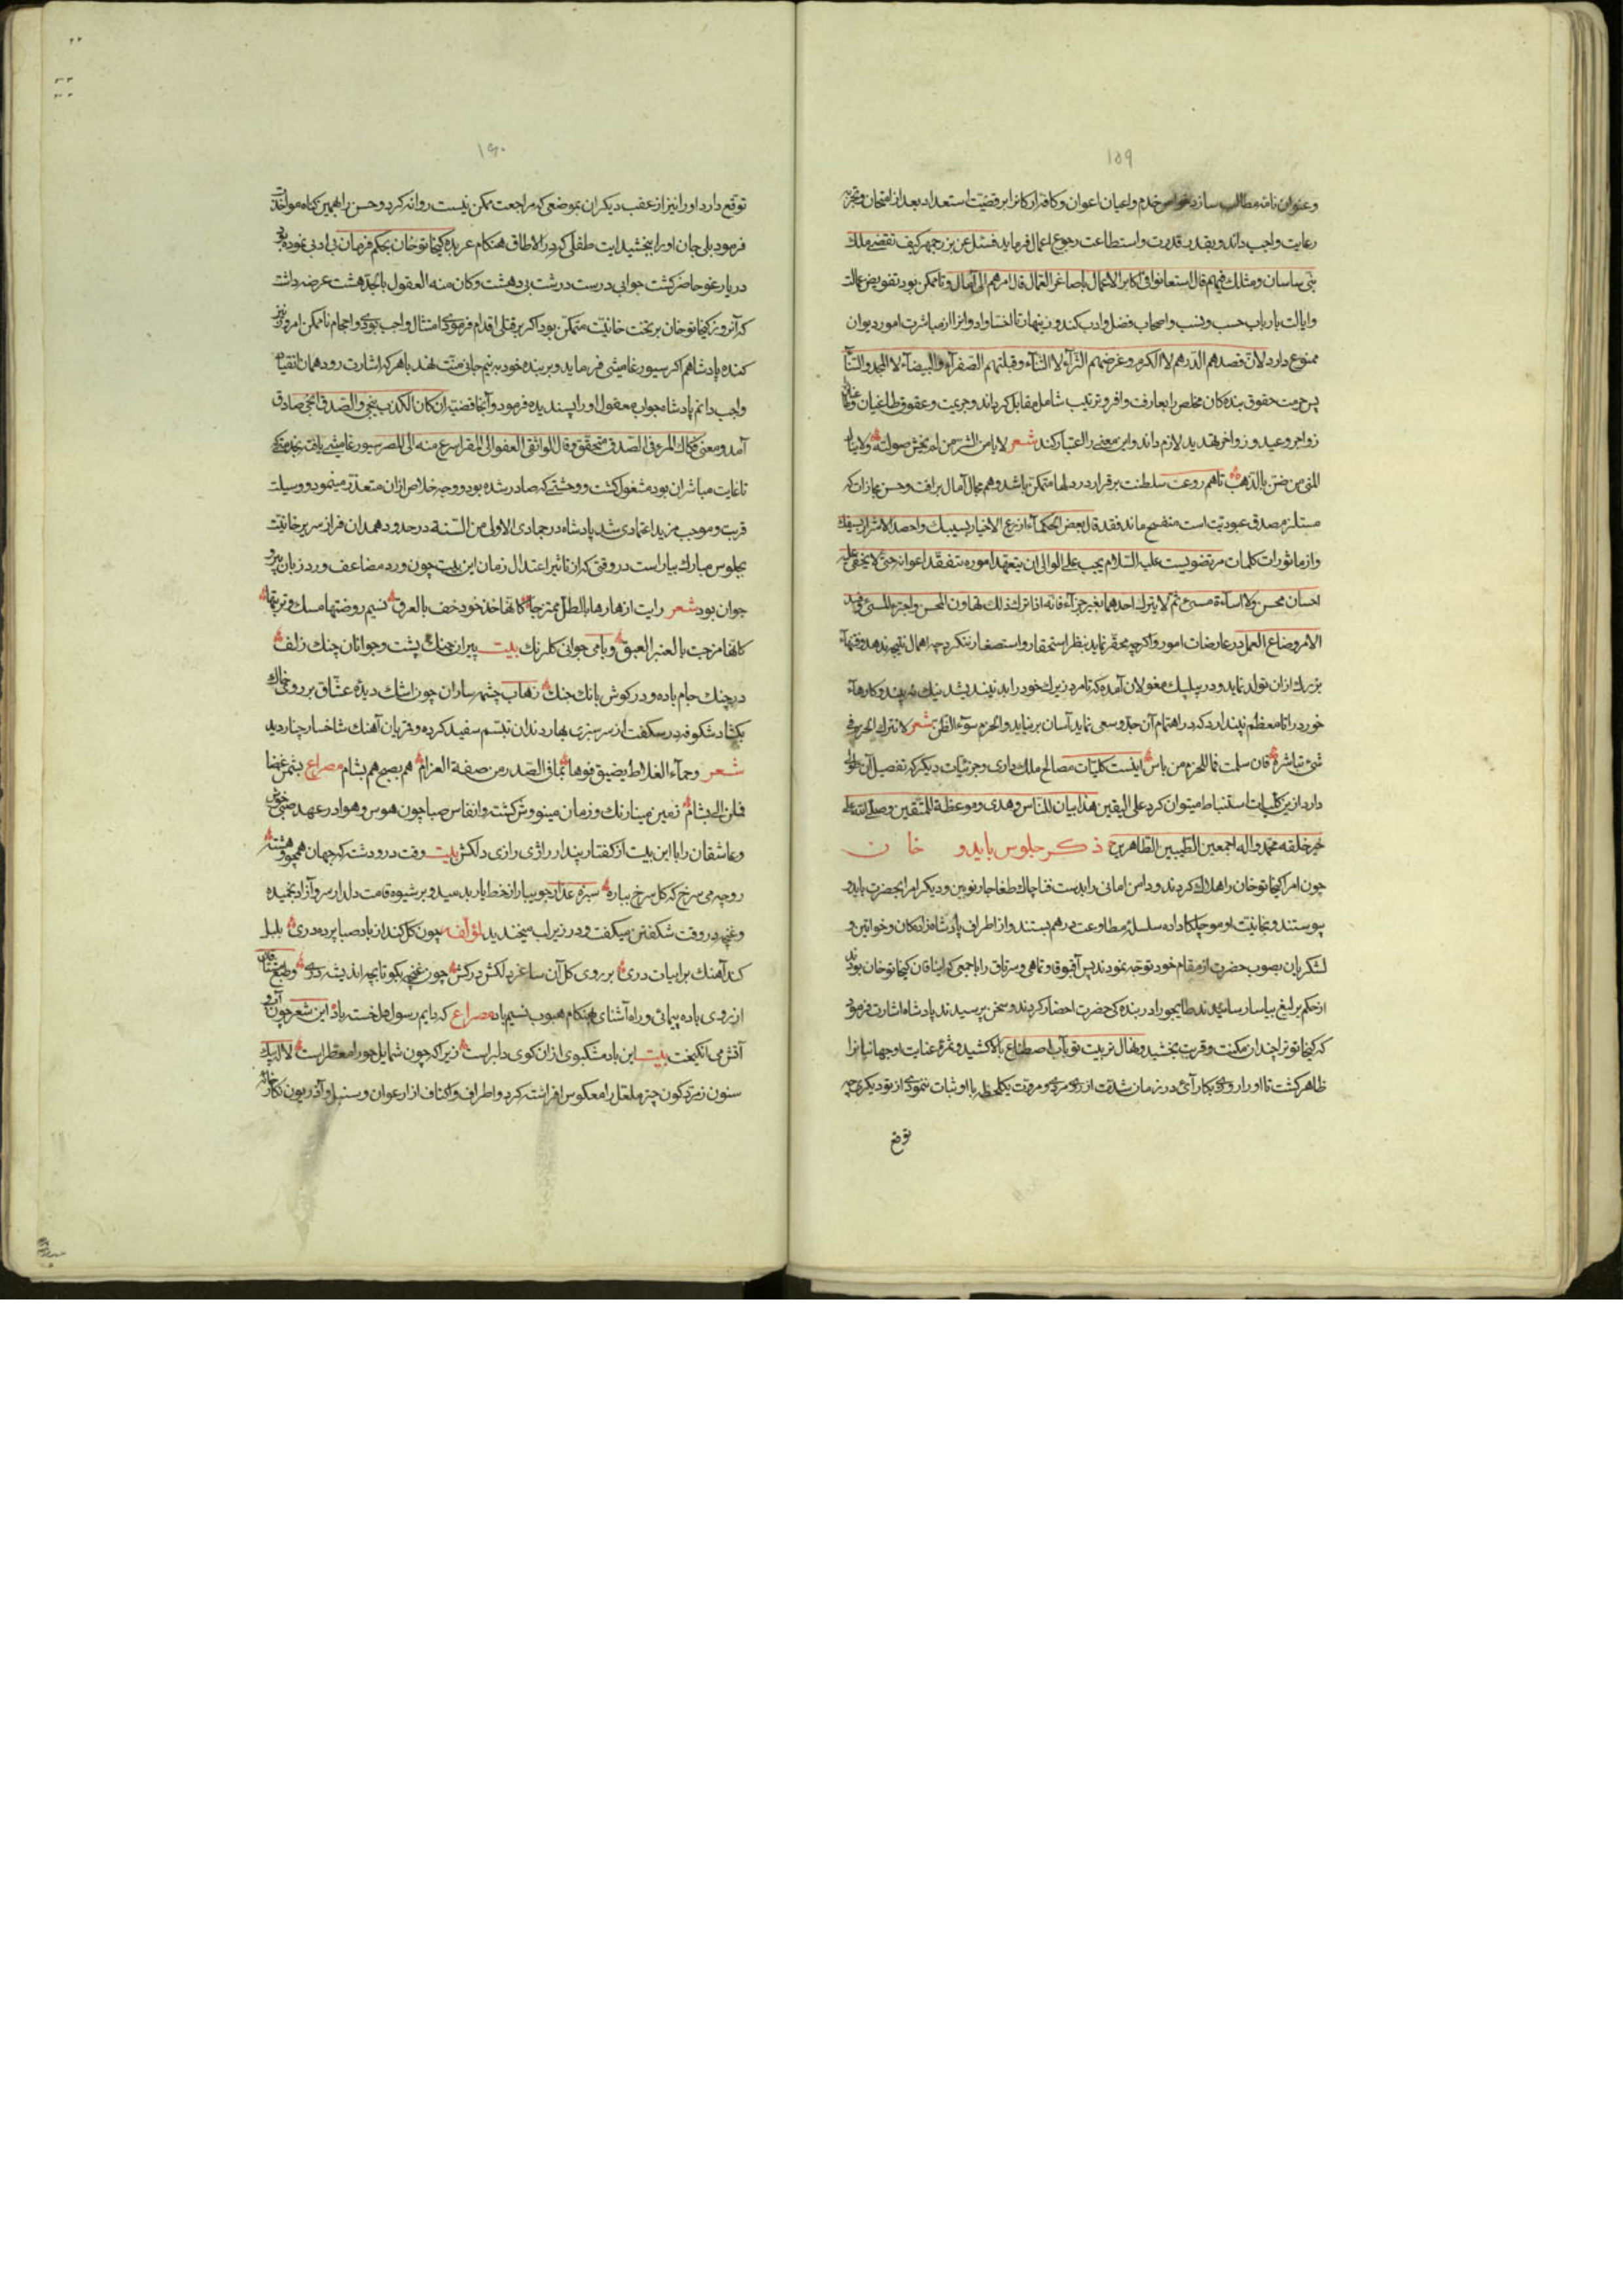 ١٥٩
و عنوان نامه مطالب سازد خواص خدم و اعیان اعوان و کافه ارکانرا بر قضیت استعداد بعد از امتحان و تجربه
رعایت واجب داند و بقدر قدرت و استطاعت رجوع اعمال فرماید فسئل عن بزرجمهر کیف نقض ملک
بنی ساسان و مثلک فیهم قال استعانوا فی اکابر الاعمال باصاغر العمال فآل امرهم الی آمال و تا ممکن بود تفویض عمالت
و ایالت بارباب حسب و نسب و اصحاب فضل و ادب کند و زینهار تا اخسا و ادوانرا از مباشرت امور دیوان
ممنوع دارد لان قصدهم الدرهم لا الکرم و غرضهم الثرآء لا الثنآء و قبلتهم الصفرآء و البیضآء لا المجد و السنآ
پس حرمت حقوق بنده کان مخلص را بعارفت وافر و تربیت شامل مقابل کرداند و جریمت و عقوق طاغیان
زواجر وعید و زواخر تهدید لازم داند و این معنی را اعتبار کند شعر لا یامن الشر من لم یخش صولته ولا ینال
المنی من ضن بالذهب تا هم روعت سلطنت برقرار در دلها متمکن باشد و هم مجال آمال برافت و حسن مجازات که
مستلزم صدق عبودیت است منفسح ماند فقد قال بعض الحکمآء ازرع الاخیار بسیبک و احصد الاشرار بسیفک
و از ماثورات کلمات مرتضویست علیه السلام یجب علی الوالی ان یتعهد اموره بتفقد اعوانه حتی لا یخفی علیه
احسان محسن ولا اساءة مسیئ ثم لا یترک احدهما بغیر جزآء فانه اذا ترک ذلک تهاون المحسن و اجترء المسیئ و فسد
الامر و ضاع العمل در عارضات امور و اکرچه محقر نماید بنظر استحقار و استصغار ننکرد چه اهمال نتیجه ندهد و
بزرک از ان تولد نماید و در بیلیک مغولان آمده که تا مرد زیرک خود را بد نیندیشد نیک نه بیند و کارها
خورد را تا معظم نپندارد که در اهتمام آن جد و سعی نماید آسان برنیاید و الحزم سوء الظن شعر لا تترک الحزم فی
شیئ تباشره فان سلمت فما للحزم من باس اینست کلیات مصالح ملک داری و جزئیات دیکر که تفصیل آن
دارد ازین کلیات استنباط میتوان کرد علی الیقین هذا بیان للناس و هدی و موعظة للمتقین و صلی الله علی
خیر خلقه محمد و آله اجمعین الطیبین الطاهرین ذکر جلوس بایدو خان
چون امرا کیخاتو خان را هلاک کردند و دامن امانی را بدست فنا چاک طغاجار نویین و دیکر امرا بحضرت بایدو
پیوستند و بخانیت او موچلکا داده سلسلهٔ مطاوعت درهم بستند و از اطراف پادشاه زاده کان و خواتین و
لشکریان بصوب حضرت از مقام خود توجه نمودند پس آقبوقا و تماهی و سرتاق را با جمعی که ایناقان کیخاتو خان بودند
از حکم یرلیغ بیاسا رسانیدند طایجو را در بنده کی حضرت احضار کردند و سخن پرسیدند پادشاه اشارت فرمود
که کیخاتو ترا چندان مکنت و قربت بخشید و نهال تربیت تو بآب اصطناع بالا کشید و ثمرهٔ عنایت او جهانیانرا
ظاهر کشت تا او را روزی بکار آئی در زمان شدت از روی مردی و مروت یکلحظه با او ثبات ننمودی از تو دیکری چه
توقع
١٦٠
توقع دارد او را نیز از عقب دیکران بموضعی که مراجعت ممکن نیست روانه کرد و حسن را بهمین کناه مواخذت
فرمود بلی جان او را ببخشید ایت طفلی که در آلاطاق هنکام عربده کیخاتو خان بحکم فرمان بی ادبی نموده بود
در یارغو حاضر کشت جوابی درست درشت بی دهشت و کان منه العقول باجد هشت عرضه داشت
که آنروز کیخاتو خان بر تخت خانیت متمکن بود اکر بر قتلی اقدام فرمودی امتثال واجب بودی و احجام ناممکن امروز نیز
کنده پادشاهم اکر سیورغامیشی فرماید و بر بنده خود به نیم جانی منت نهد باهر که اشارت رود همان انقیاد
واجب دانم پادشاه جواب معقول او را پسندیده فرمود و آنجا قضیه ان کان الکذب ینجی و الصدق انجی صادق
آمد و معنی فکاک المرء فی الصدق متحقق و قال الواثقی العفو الی المقر اسرع منه الی المصر سیورغامیشی یافت
تا غایت مباشران بود مشغول کشت و وحشتی که صادر شده بود و وجه خلاص ازان متعذر مینمود و وسیلت
قربت و موجب مزید اعتمادی شد پادشاه در جمادی الاولی من السنة در حدود همدان فراز سریر خانیت
بجلوس مبارک بیاراست در وقتی که از تاثیر اعتدال زمان این بیت چون ورد مضاعف ورد زبان پیر و
جوان بود شعر رایت ازهارها بالطل ممتزجا کانها خد خود خف بالعرق نسیم روضتها مسک و تربتها
کانها مزجت بالعنبر العبق و با می جوانی کلرنک بیت پیران چنک پشت و جوانان چنک زلف
در چنک جام باده و در کوش بانک چنک زهاب چشمه ساران چون اشک دیدهٔ عشاق بر روی خاک
بکشاد شکوفه در سکفت از سرسبزی بهار دندان تبسم سفید کرده و قریان آهنک شاخسار چنار دید
شعر و حمآء العلاط یضیق فوها بما فی الصدر من صفة الغرام هم بصبح هم بشام مصراع
فلن الی بشام زمین مینا رنک و زمان مینووش کشت و انفاس صبا چون هوس و هوا در عهد صبی خوش
و عاشقان را با این بیت از کفتار پندار رازی رازی دلکش بیت وقت درو دشته که جهان همچو بهشته
رو چه می سرخ که کل سرخ بباره سبزه عذار جویبار از خط یار بدمید و بر شیوه قامت دلدار سرو آزاد بخمیده
و غنچه در وقت شکفتن میکفت و در زیر لب میخندید لمؤلفه چون کل کند از باد صبا پرده دری بلبل
کند آهنک بر ابیات دری بر روی کل آن ساغر دلکش درکش چون غنچه بکو تا بچه اندیشه دری
از روی باده پیمائی و راه آشنائی هنکام هبوب نسیم باد مصراع که بایم رسول دل خسته باد این شعر چون
آتش می انکیخت بیت این باد مشکبوی از ان کوی دلبر است زیرا که چون شمایل حورا معطر است لاله بر یک
ستون زمرد کون چتر ملعل را معکوس افراشته کرد و اطراف و اکناف از ارغوان و سنبل و آذریون